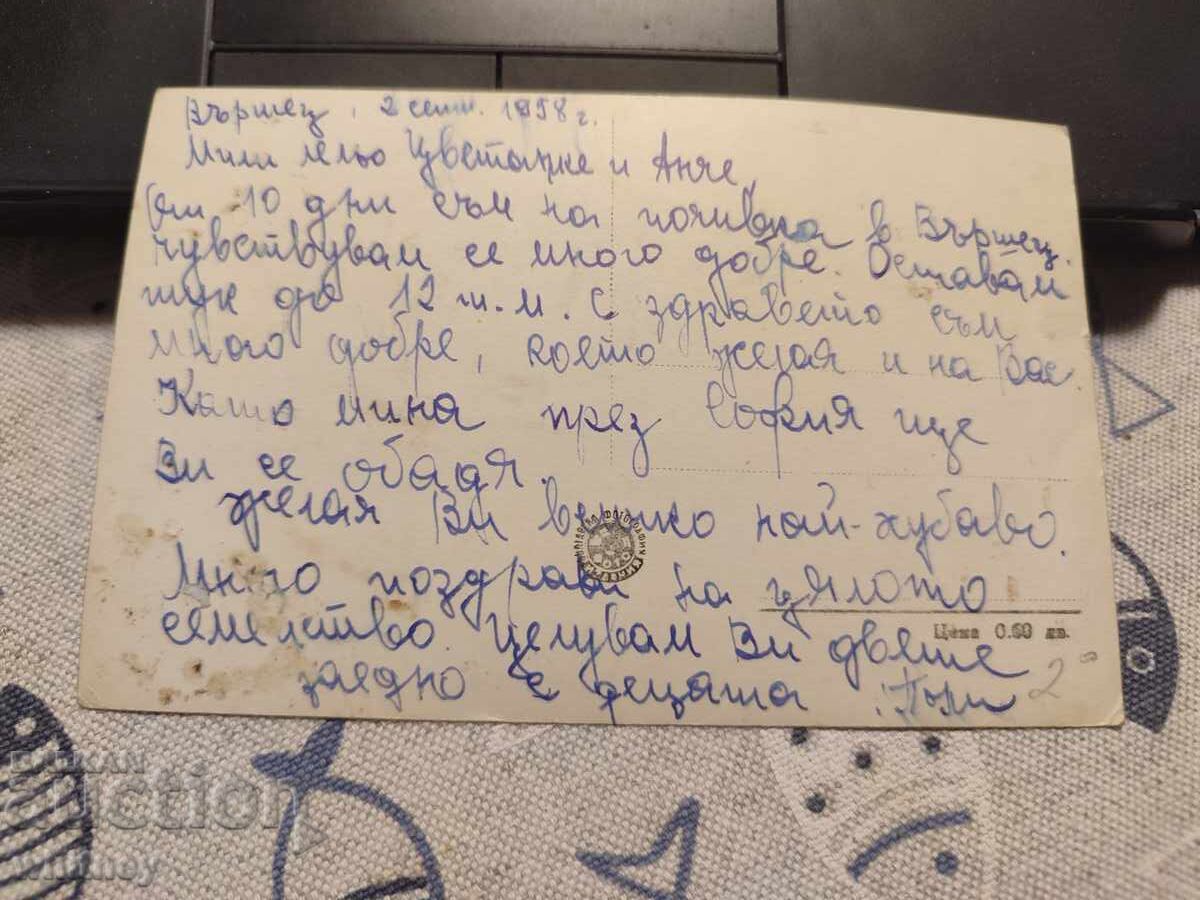 Вършец, 2 септ. 1958 г.
Мили лельо Цветанке и Анче,
От 10 дни съм на почивка в Вършец.
Чувствувам се много добре. Оставам
тук до 12 т.м. С здравето съм
много добре, което желая и на Вас.
Като мина през София ще
Ви се обадя.
Желая Ви всичко най-хубаво.
Много поздрави на цялото
семейство. Целувам Ви двете
заедно с децата.
Цена 0.60 лв.
2
BALKAN
auction